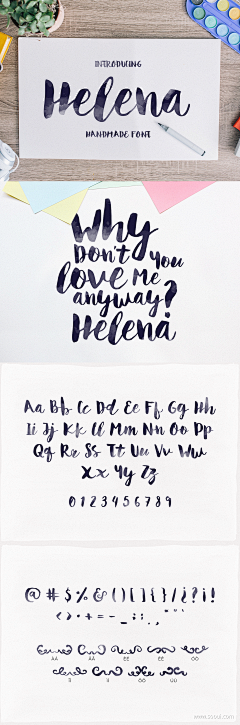 INTRODUCING
Helena
HANDMADE FONT
Why
DON'T you
love Me
anyway?
Helena
Aa Bb Cc Dd Ee Ff Gg Hh
Ii Jj Kk Ll Mm Nn Oo Pp
Qq Rr Ss Tt Uu Vv Ww
Xx Yy Zz
0 1 2 3 4 5 6 7 8 9
@ # $ % & ( ) [ ] { } / ¿ ? ¡ !